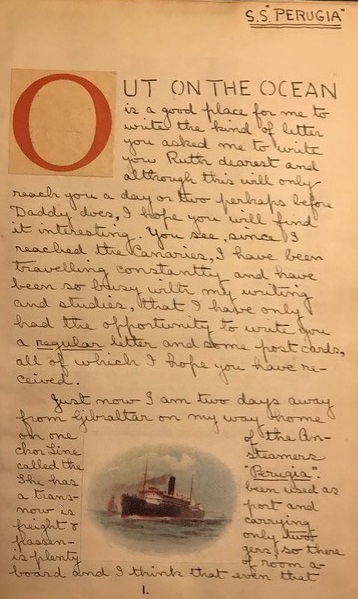 S.S. "PERUGIA"
OUT ON THE OCEAN
is a good place for me to
write the kind of letter
you asked me to write
you Ruth dearest and
although this will only
reach you a day or two perhaps before
Daddy does, I hope you will find
it interesting. You see, since I
reached the Canaries, I have been
travelling constantly and have
been so busy with my writing
and studies, that I have only
had the opportunity to write you
a regular letter and some post cards,
all of which I hope you have re-
ceived.
Just now I am two days away
from Gibraltar on my way home
on one of the An-
chor Line steamers
called the "Perugia".
She has been used as
a trans- port and
now is carrying
freight & only two
passen- gers, so there
is plenty of room a-
board and I think that even that
1.